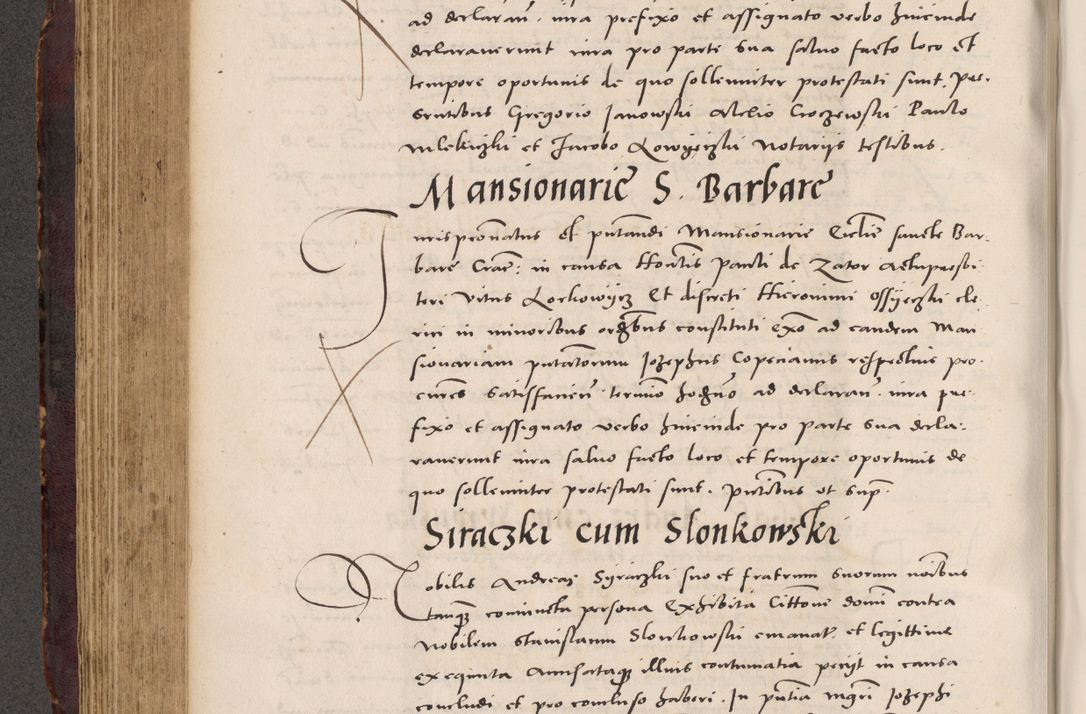 ad declarañ. iura prefixo et assignato verbo hincinde
declaraverunt iura pro parte sua salvo facto loco et
tempore oportunis de quo sollemniter protestati sunt. Pre-
sentibus Gregorio Janowski Alelio Croczewski Paulo
Mlekiczki et Jacobo Lowyeiczki Notarijs testibus.
Mansionarie S. Barbare
Jurispronatus et putandi Mansionarie Ecclie sancte Bar-
bare Crac: in causa Honilis Pauli de Zator Altupresbi-
teri Vitus Lochowycz Et discreti Hieronimi Ossyeczki cle-
rici in minoribus ordibus constituti exo ad eandem Man-
sionariam putatorum Jozephus Copecianus respectiue pro-
cures satisfacieñ. termio hodieno ad declarañ. iura pre-
fixo et assignato verbo hincinde pro parte sua decla-
raverunt iura salvo facto loco et tempore oportunis de
quo sollemniter protestati sunt. Pntibus ut sup.
Siraczki cum Slonkowski
Nobilis Andreas Syraczki suo et fratrum suorum noibus
tanq coniuncta persona Exhibita Cittone domi contra
Nobilem Stanislaum Slonkowski emanat. et legittime
exequuta Accusataq illius contumatia petijt in causa
concludi et pro concluso haberi. In pntia magri Jozephi